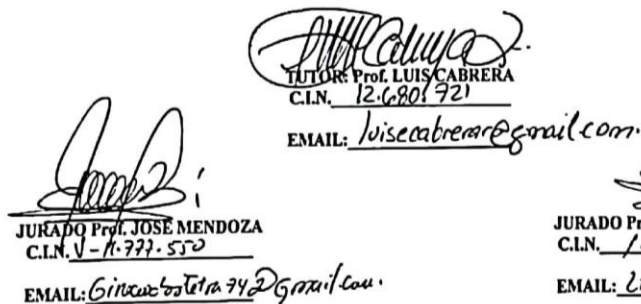 TUTOR: Prof. LUIS CABRERA
C.I.N. 12.680.721
EMAIL: luisecabrerar@gmail.com.
JURADO Prof. JOSÉ MENDOZA
C.I.N. V-11.777.550
EMAIL: @gmail.com.
JURADO
C.I.N.
EMAIL: